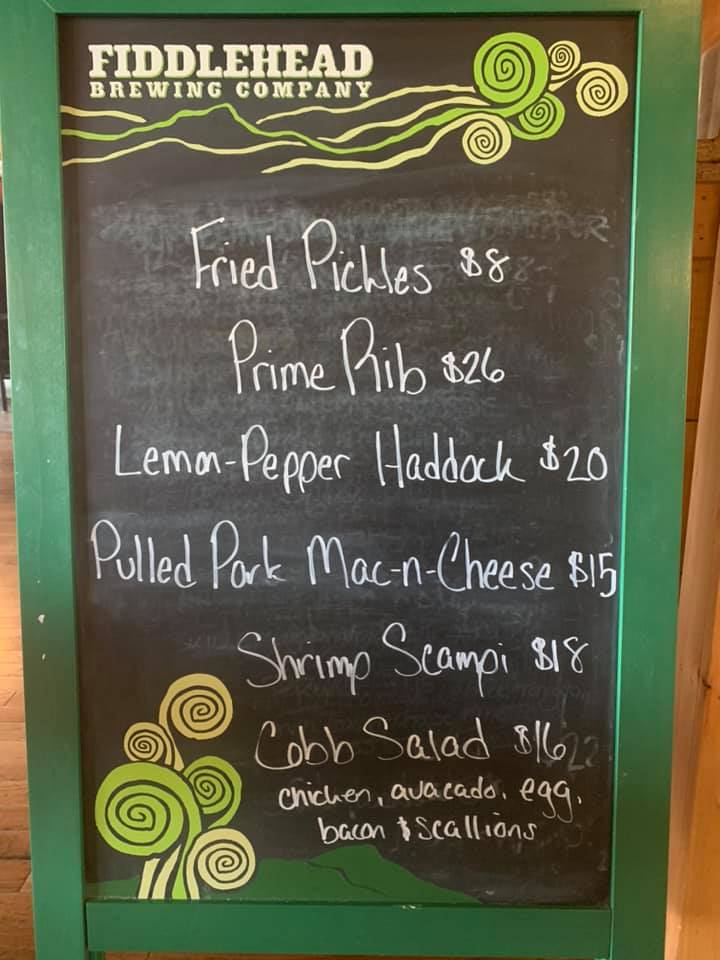 FIDDLEHEAD
BREWING COMPANY
Fried Pickles $8
Prime Rib $26
Lemon-Pepper Haddock $20
Pulled Pork Mac-n-Cheese $15
Shrimp Scampi $18
Cobb Salad $16
chicken, avacado, egg,
bacon & scallions